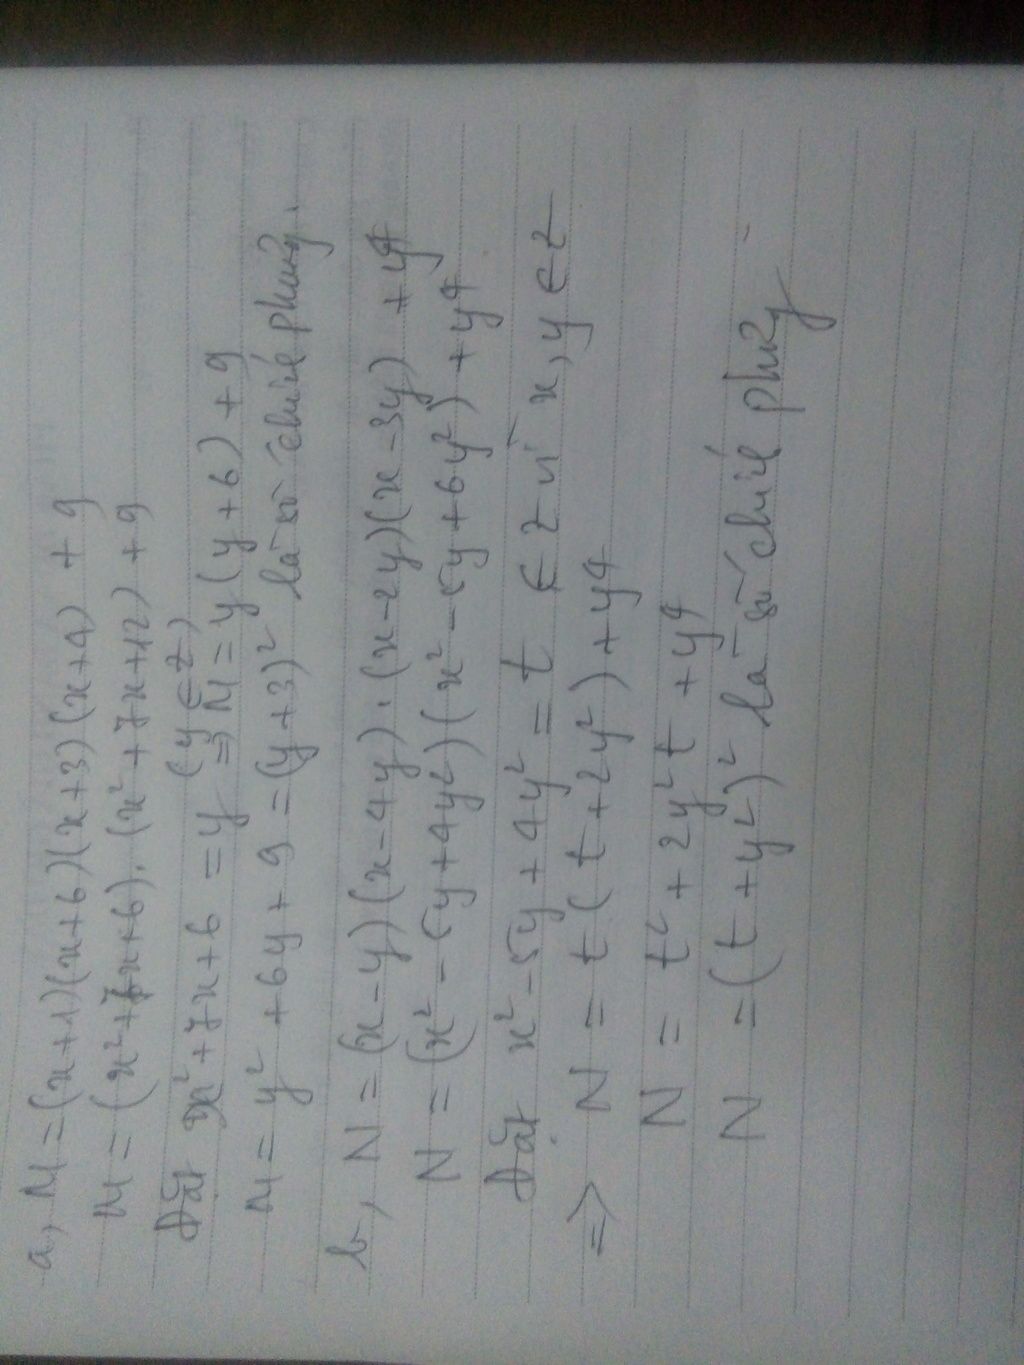 a, M = (x+1)(x+6)(x+3)(x+4) + 9
M = (x²+7x+6).(x²+7x+12) + 9
Đặt x²+7x+6 = y (y ∈ Z)
⇒ M = y(y+6) + 9
M = y² + 6y + 9 = (y+3)² là số chính phương.
b, N = (x-y)(x-4y).(x-2y)(x-3y) + y⁴
N = (x² - 5y + 4y²)(x² - 5y + 6y²) + y⁴
Đặt x² - 5y + 4y² = t ∈ Z vì x, y ∈ Z
=> N = t(t + 2y²) + y⁴
N = t² + 2y²t + y⁴
N = (t + y²)² là số chính phương